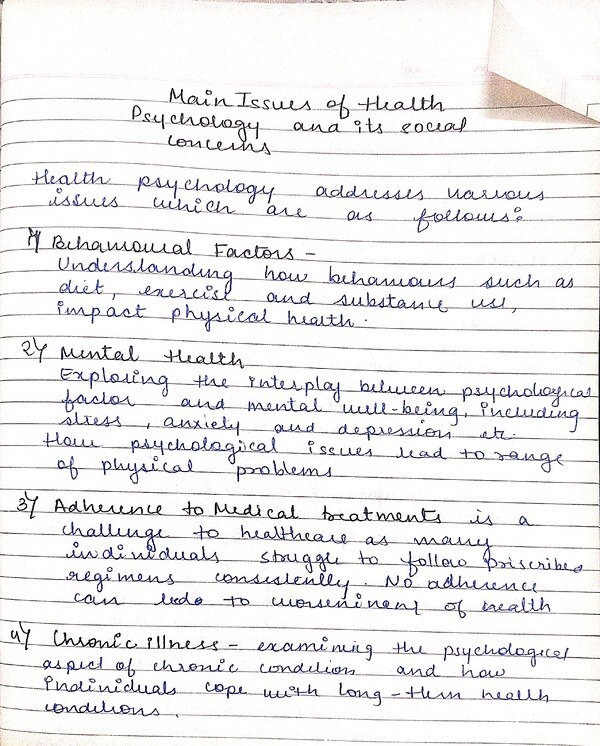 Main Issues of Health
Psychology and its social
concerns
Health psychology addresses various
issues which are as follows:
1) Behavioural Factors -
Understanding how behaviours such as
diet, exercise and substance use,
impact physical health.
2) Mental Health
Exploring the interplay between psychological
factor and mental well-being, including
stress, anxiety and depression etc.
How psychological issues lead to range
of physical problems
3) Adherence to Medical treatments is a
challenge to healthcare as many
individuals struggle to follow priscribed
regimens consistently. No adherence
can to of health
4) Chronic illness - examining the psychological
aspect of chronic condition and how
individuals cope with long-term health
conditions.